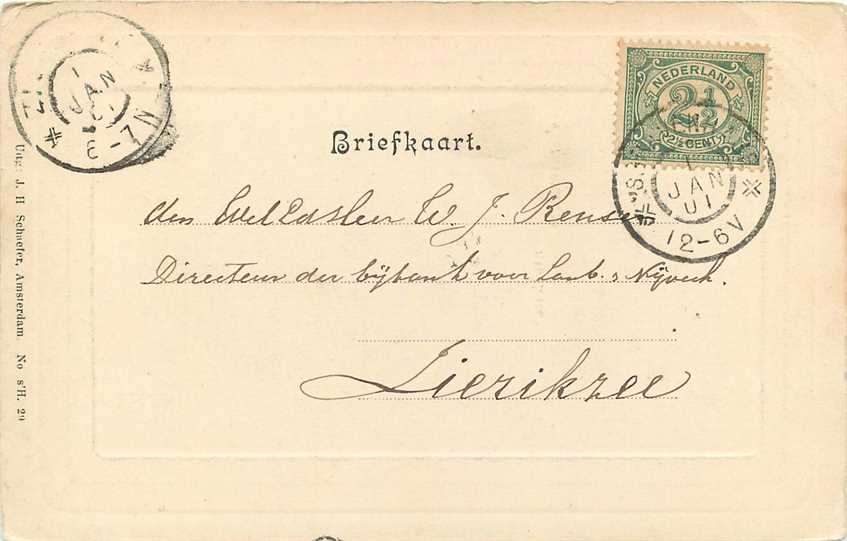 ZI
1
JAN
01
6-7N
NEDERLAND
2½
2½ CENT
'S
1
JAN
01
12-6V
Briefkaart.
den WelEdelen Heer W. J. Rensen
Directeur der voor Landb. & Nijverh.
Zierikzee
Uitg: J. H Schaefer, Amsterdam No s'H. 29